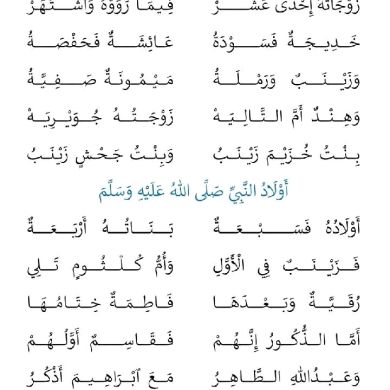 زَوْجَاتُهُ إِحْدَى عَشَرْ فِيمَا رَوَوْهُ وَاشْتَهَرْ
خَدِيجَةٌ فَسَوْدَةُ عَائِشَةٌ فَحَفْصَةُ
وَزَيْنَبٌ وَرَمْلَةُ مَيْمُونَةٌ صَفِيَّةُ
وَهِنْدٌ أمَّ التَّالِيَهْ زَوْجَتُهُ جُوَيْرِيَهْ
بِنْتُ خُزَيْمَ زَيْنَبُ وَبِنْتُ جَحْشٍ زَيْنَبُ
أَوْلَادُ النَّبِيِّ صَلَّى اللهُ عَلَيْهِ وَسَلَّمَ
أَوْلَادُهُ فَسَبْعَةٌ بَنَاتُهُ أَرْبَعَةٌ
فَزَيْنَبٌ فِي الْأَوَّلِ وَأُمُّ كُلْثُومٍ تَلِي
رُقَيَّةٌ وَبَعْدَهَا فَاطِمَةٌ خِتَامُهَا
أَمَّا الذُّكُورُ إِنَّهُمْ فَقَاسِمٌ أَوَّلُهُمْ
وَعَبْدُاللهِ الطَّاهِرُ مَعَ ٱبْرَاهِيمَ أَذْكُرُ